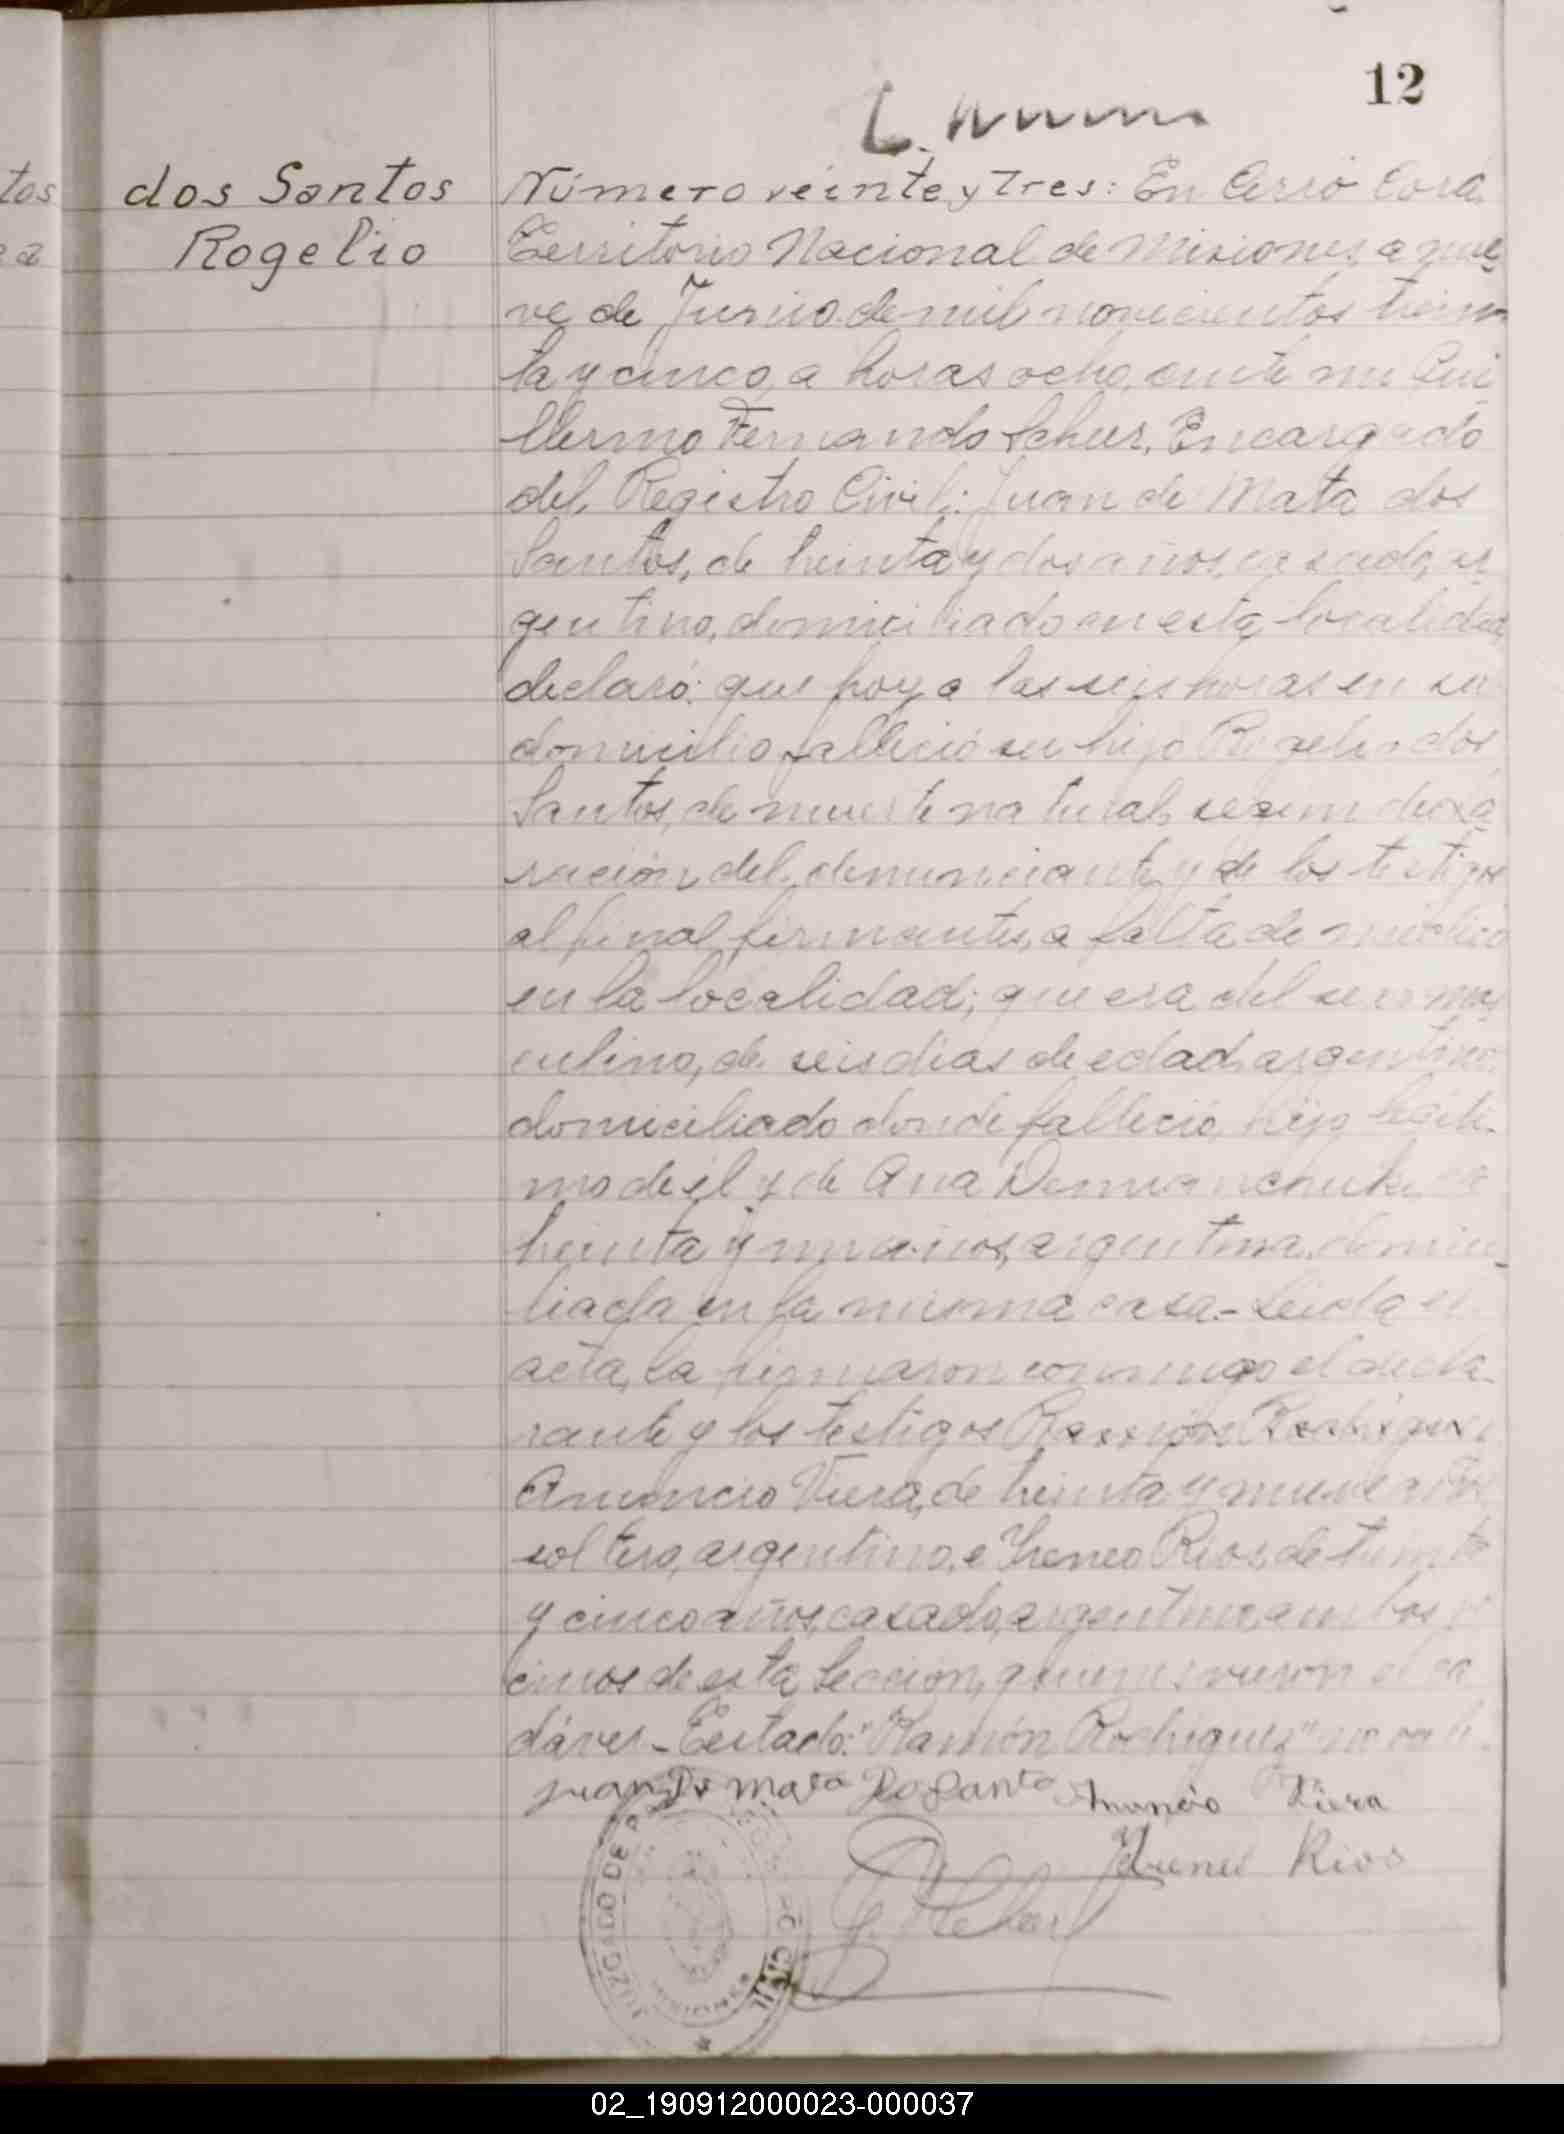 12
dos Santos
Rogelio
Número veinte y tres: En Cerro Corá
Territorio Nacional de Misiones, a nue-
ve de Junio de mil novecientos trein
ta y cinco, a horas ocho, ante mi Gui
llermo Fernando Scheer, Encargado
del Registro Civil: Juan de Mata dos
Santos, de treinta y dos años, casado, ar
gentino, domiciliado en esta localidad
declaró: que hoy a las seis horas en su
domicilio falleció su hijo Rogelio dos
Santos, de muerte natural, segun decla
ración del denunciante y de los testigos
al final firmantes, a falta de médico
en la localidad; que era del sexo mas
culino, de seis dias de edad, argentino,
domiciliado donde falleció, hijo legíti-
mo de él y de Ana Demianchuk, de
treinta y un años, argentina, domici-
liada en la misma casa.- Leída el
acta, la firmaron conmigo el decla-
rante y los testigos Ramón Rodriguez
Anuncio Viera, de treinta y nueve años
soltero, argentino, e Yreneo Rios, de treinta
y cinco años, casado, argentino, ambos ve
cinos de esta Sección, quienes vieron el ca
dáver._Testado: "Ramón Rodriguez" no vale.
Juan De Mata Do Santo Anuncio Viera
Yreneo Rios
JUZGADO DE
CIVIL
MISIONES
02_190912000023-000037